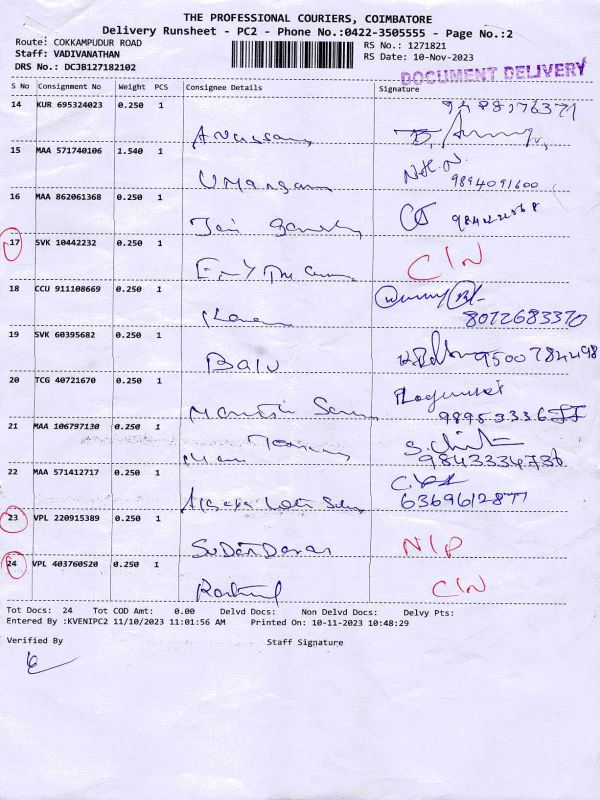 THE PROFESSIONAL COURIERS, COIMBATORE
Delivery Runsheet - PC2 - Phone No.:0422-3505555 - Page No.:2
Route: COKKAMPUDUR ROAD
RS No.: 1271821
Staff: VADIVANATHAN
RS Date: 10-Nov-2023
DRS No.: DCJB127182102
DOCUMENT DELIVERY
S No Consignment No Weight PCS Consignee Details Signature
14 KUR 695324023 0.250 1
15 MAA 571740106 1.540 1
9894091600
16 MAA 862061368 0.250 1
17 SVK 10442232 0.250 1
C/N
18 CCU 911108669 0.250 1
8072683370
19 SVK 60395682 0.250 1
Balu 9500784498
20 TCG 40721670 0.250 1
21 MAA 106797130 0.250 1
9843334736
22 MAA 571412717 0.250 1
6369612877
23 VPL 220915389 0.250 1
N/P
24 VPL 403760520 0.250 1
C/N
Tot Docs: 24 Tot COD Amt: 0.00 Delvd Docs: Non Delvd Docs: Delvy Pts:
Entered By :KVENIPC2 11/10/2023 11:01:56 AM Printed On: 10-11-2023 10:48:29
Verified By Staff Signature